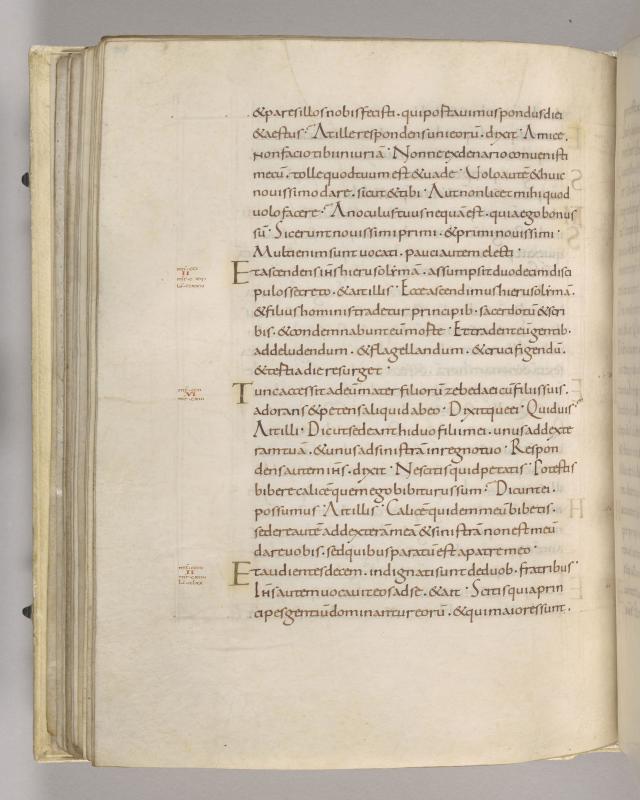 &paresillosnobisfecisti· quiportauimuspondusdiei
&aestus· Atillerespondensunieorū· dixit· Amice·
Nonfaciotibiiniuriā· Nonneexdenarioconuenisti
mecū· tollequodtuumest&uade· Uoloautē&huic
nouissimodare· sicut&tibi· Autnonlicetmihiquod
uolofacere· Anoculustuusnequāest· quiaegobonus
sū· Siceruntnouissimiprimi· &priminouissimi·
Multienimsuntuocati· pauciautemelecti·
Etascendensiħshierusolimā· assumpsitduodecimdisci
pulossecreto· &aitillis· Ecceascendimushierusolimā·
&filiushoministradeturprincipib· sacerdotū&scri
bis· &condemnabunteūmorte· Ettradenteūgentib·
addeludendum· &flagellandum· &crucifigendū·
&tertiadieresurget·
Tuncaccessitadeūmaterfiliorūzebedaeicūfiliissuis·
adorans&petensaliquidabeo· Dixitquiei· Quiduis·
Aitilli· Dicutsedeanthiduofiliimei· unusaddexte
ramtuā· &unusadsinistrāinregnotuo· Respon
densautemiħs· dixit· Nescitisquidpetatis· Potestis
biberecalicēquemegobibiturussum· Dicuntei·
possumus· Aitillis· Calicēquidemmeūbibetis·
sedereautēaddexterāmeā&sinistrānonestmeū
dareuobis· sedquibusparatūestapatremeo·
Etaudientesdecem· indignatisuntdeduob· fratribus·
Iħsautemuocauiteosadse· &ait· Scitisquiaprin
cipesgentiūdominantureorū· &quimaioressunt·